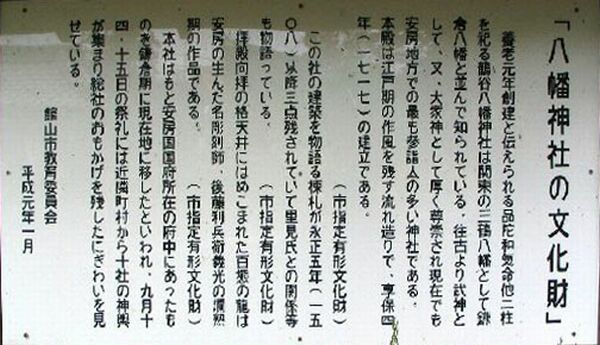 「八幡神社の文化財」
養老元年創建と伝えられる品陀和気命他二柱
を祀る鶴谷八幡神社は関東の三鶴八幡として鎌
倉八幡と並んで知られている。往古より武神と
して、又、大家神として厚く尊崇され現在でも
安房地方での最も参詣人の多い神社である。
本殿は江戸期の作風を残す流れ造りで、享保四
年(一七一七)の建立である。
(市指定有形文化財)
この社の建築を物語る棟札が永正五年(一五
〇八)以降三点残されていて里見氏との関係等
も物語っている。
(市指定有形文化財)
拝殿向拝の格天井にはめこまれた百態の龍は
安房の生んだ名彫刻師、後藤利兵衛義光の円熟
期の作品である。
(市指定有形文化財)
本社はもと安房国国府所在の府中にあったも
のを鎌倉期に現在地に移したといわれ、九月十
四・十五日の祭礼には近隣町村から十社の神輿
が集まり総社のおもかげを残したにぎわいを見
せている。
館山市教育委員会
平成元年一月